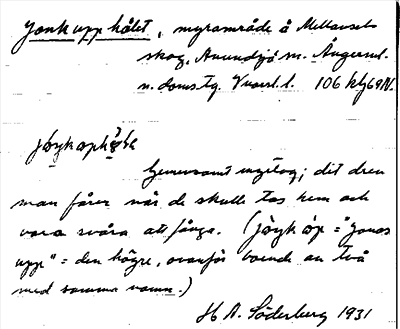 Jonkupphålet, myrområde å Mellansels
skog, Anundsjö sn. Ångerml.
n. doms tg. Västl. l. 106 kly69N.
jöykophɔ̀le
Gemensamt myrslog; dit drev
man fåren när de skulle tas hem och
vara svåra att fånga. (jöyk óp = "Jonas
uppe" = den högre, ovanför boende av två
med samma namn.)
H A. Söderberg 1931